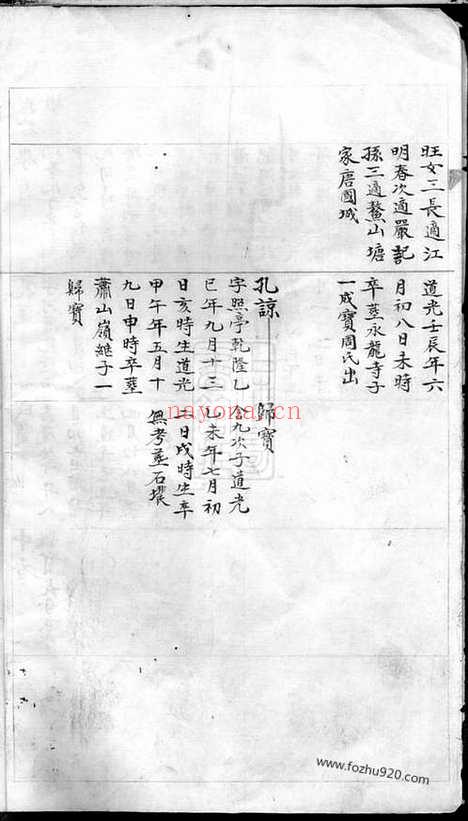 旺女三長適江
明春次適嚴記
孫三適鰲山塘
家唐國城
道光壬辰年六
月初八日未時
卒葬永龍寺子
一成寶周氏出
孔諒
字照亭乾隆乙
巳年九月十三
日亥時生道光
甲午年五月十
九日申時卒葬
蕭山嶺繼子一
歸寶
歸寶
含九次子道光
乙未年七月初
二日戌時生卒
無考葬石壋
nayona.cn
www.fozhu920.com